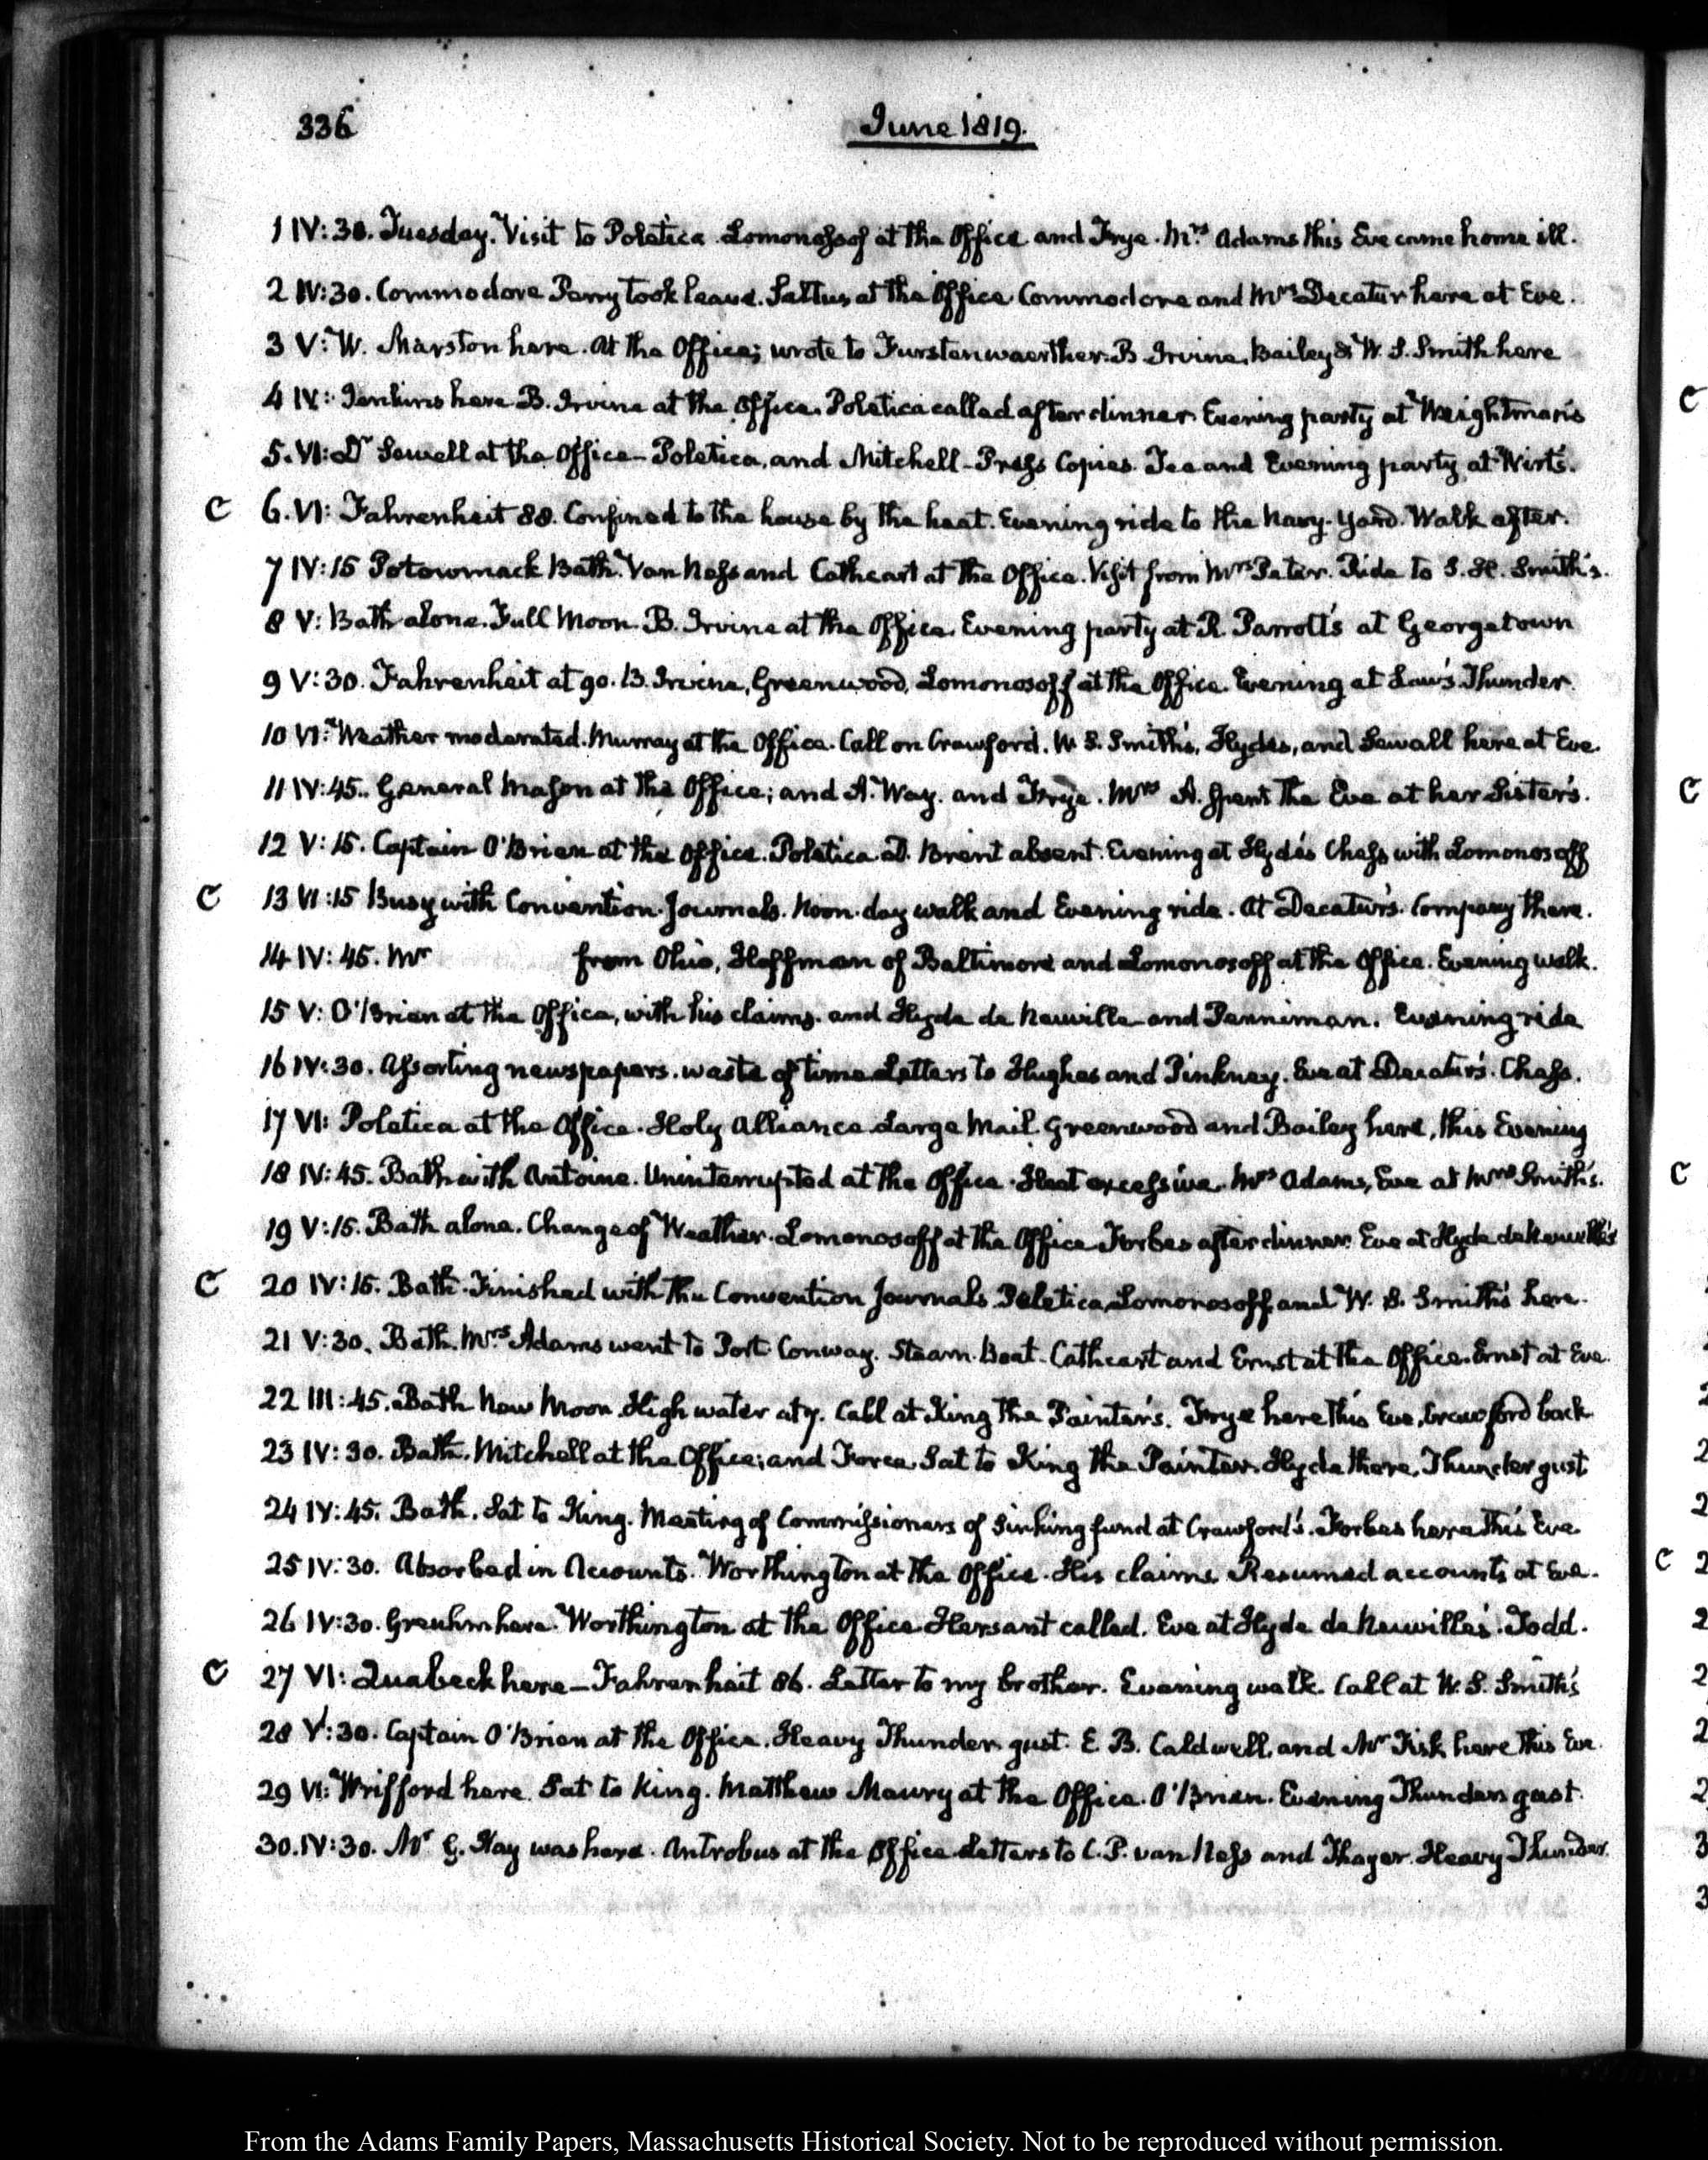 336
June 1819.
1 IV:30. Tuesday. Visit to Poletica. Lomonossof at the Office and Frye. Mrs Adams this Eve came home ill.
2 IV:30. Commodore Perry took leave. Saltus at the Office Commodore and Mrs Decatur here at Eve.
3 V: W. Marston here. At the Office; wrote to Furstenwaerther. B. Irvine, Bailey & W. S. Smith here
4 IV: Jenkins here B. Irvine at the Office. Poletica called after dinner. Evening party at Weightman's
5. VI: Dr Sewall at the Office—Poletica, and Mitchell—Press Copies. Tea and Evening party at Wirt's.
C 6. VI: Fahrenheit 88. Confined to the house by the heat. Evening ride to the Navy-Yard. Walk after.
7 IV:15 Potowmack Bath. Van Ness and Cathcart at the Office. Visit from Mrs Peter. Ride to S. H. Smith's.
8 V: Bath alone. Full Moon. B. Irvine at the Office. Evening party at R. Parrott's at Georgetown
9 V:30. Fahrenheit at 90. B. Irvine, Greenwood, Lomonosoff at the Office. Evening at Law's Thunder.
10 VI: Weather moderated. Murray at the Office. Call on Crawford. W. S. Smith's, Hyde's, and Sewall here at Eve.
11 IV:45. General Mason at the Office; and A. Way. and Frye. Mrs A. spent the Eve at her Sister's.
12 V:15. Captain O'Brien at the Office. Poletica. D. Brent absent. Evening at Hyde's Chess with Lomonosoff
C 13 VI:15 Busy with Convention Journals. Noon-day walk and Evening ride. At Decatur's. Company there.
14 IV:45. Mr from Ohio, Hoffman of Baltimore and Lomonosoff at the Office. Evening walk.
15 V: O'Brien at the Office, with his claims. and Hyde de Neuville and Penniman. Evening ride
16 IV:30. Assorting newspapers. waste of time Letters to Hughes and Pinkney. Eve at Decatur's. Chess.
17 VI: Poletica at the Office. Holy Alliance Large Mail. Greenwood and Bailey here, this Evening
18 IV:45. Bath with Antoine. Uninterrupted at the Office. Heat excessive. Mrs Adams, Eve at Mrs Smith's.
19 V:15. Bath alone. Change of Weather. Lomonosoff at the Office Forbes after dinner. Eve at Hyde de Neuville's
C 20 IV:15. Bath. Finished with the Convention Journals. Poletica, Lomonosoff, and W. S. Smith's here.
21 V:30. Bath. Mrs Adams went to Port Conway. Steam-Boat. Cathcart and Ernst at the Office. Ernst at Eve.
22 III:45. Bath New Moon. High water at 7. Call at King the Painter's. Frye here this Eve, Crawford back
23 IV:30. Bath. Mitchell at the Office; and Force. Sat to King the Painter. Hyde there, Thunder gust
24 IV:45. Bath. Sat to King. Meeting of Commissioners of Sinking fund at Crawford's. Forbes here this Eve.
25 IV:30. Absorbed in Accounts. Worthington at the Office. His claims. Resumed accounts at Eve.
26 IV:30. Greuhm here. Worthington at the Office Hersant called. Eve at Hyde de Neuville's. Todd.
C 27 VI: Quabeck here—Fahrenheit 86. Letter to my brother. Evening walk. Call at W. S. Smith's
28 V:30. Captain O'Brien at the Office. Heavy Thunder gust. E. B. Caldwell, and Mr Fisk here this Eve.
29 VI: Wrifford here. Sat to King. Matthew Maury at the Office. O'Brien. Evening Thunder gust.
30. IV:30. Mr G. Hay was here. Antrobus at the Office Letters to C. P. van Ness and Thayer. Heavy Thunder.
From the Adams Family Papers, Massachusetts Historical Society. Not to be reproduced without permission.